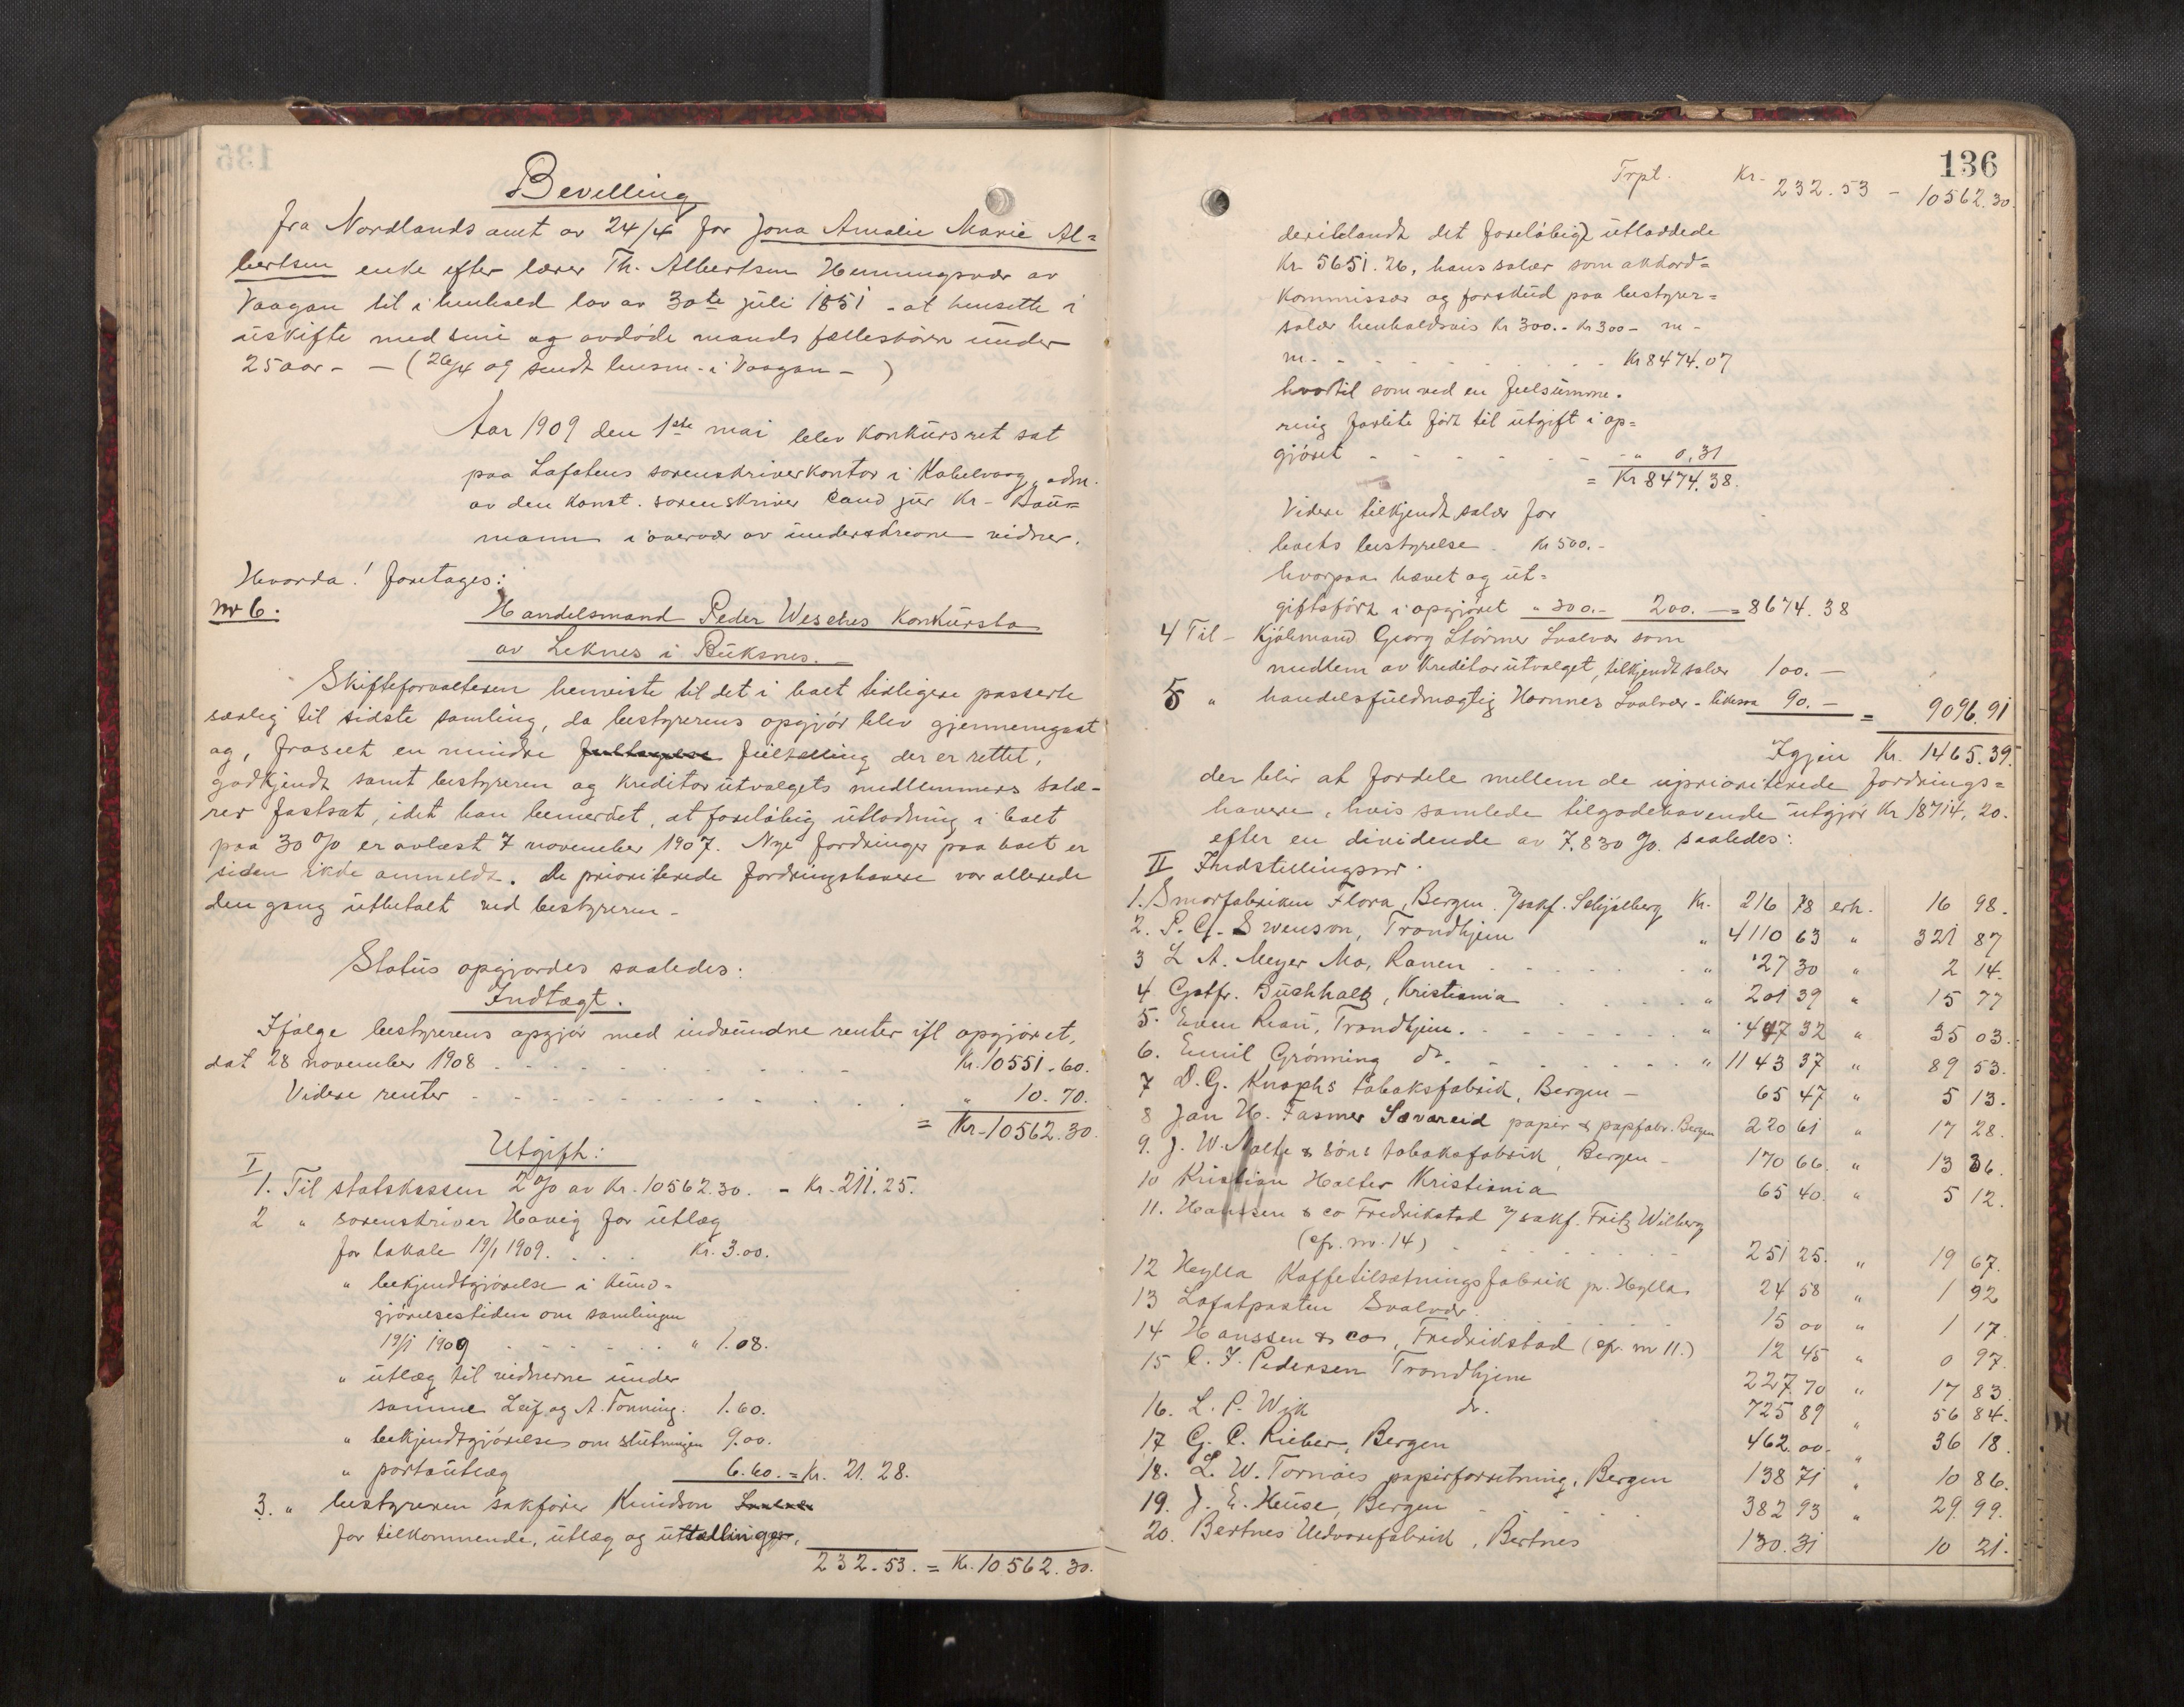 Bevelling
fra Nordlands amt av 24/4 for Jona Amalie Marie Al=
bertsen enke efter lærer Th. Albertsen Henningsvær av
Vaagan til i henhold lov av 30te juli 1851 - at hensitte i
uskifte med sine og avdøde mands fællesbörn under
25 aar - - (26/4 09 sendt lensm. i Vaagan - )
Aar 1909 den 1ste mai blev konkursret sat
paa Lofotens sorenskriverkontor i Kabelvaag, adm.
av den konst. sorenskriver cand jur Kr. Bau=
mann i overvær av underskrevne vidner.
Hvorda! foretages:
nr 6.
Handelsmand Peder Wesches konkursbo
av Leknes i Buksnes.
Skifteforvalteren henviste til det i boet tidligere passerte
særlig til sidste samling, da bestyrerens opgjör blev gjennemgaat
og, fraseet en mindre feiltælling der er rettet,
godkjendt samt bestyreren og kreditorutvalgets medlemmers salæ-
rer fastsat, idet han bemerket, at foreløbig utlodning i boet
paa 30 % er avlæst 7 november 1907. Nye fordringer paa boet er
siden ikke anmeldt. De prioriterede fordringshavere var allerede
den gang utbetalt ved bestyreren -
Status opgjordes saaledes:
Indtægt.
Ifølge bestyrerens opgjör med indvundne renter ifl opgjöret,
dat 28 november 1908 - - - Kr. 10551.60.
Videre renter - - - " 10.70.
= Kr. 10562.30.
Utgift:
I
1. Til statskassen 2 % av Kr. 10562.30. - Kr. 211.25.
2 " sorenskriver Havig for utlæg
for lokale 19/1 1909. . . . Kr. 3.00.
" bekjendtgjörelse i kund=
gjörelsestiden om samlingen
19/1 1909 . . . . " 1.08.
" utlæg til vidnerne under
samme Leif og A. Tönning. 1.60.
" bekjendtgjörelse om slutningen 9.00.
" portoutlæg 6.60. = Kr. 21.28.
3. " bestyreren sakfører Knudson
for tilkommende, utlæg og uttællinger,
232.53. = Kr. 10562.30.
136
Trpt. Kr. 232.53 - 10562.30.
deriblandt det foreløbig utloddede
Kr 5651.26, hans salær som akkord=
kommissær og forskud paa bestyrer=
salær henholdsvis Kr 300.- Kr 300 - m -
m - - - - Kr 8474.07
hvortil som ved en feilsumme.
ring forlite ført til utgift i op=
gjöret - - - " 0,31
= Kr 8474.38.
Videre tilkjendt salær for
boets bestyrelse . Kr 500.-
hvorpaa hævet og ut=
giftsført i opgjöret " 300.- 200. - = 8674.38
4 Til - Kjøbmand Georg Störmer Svolvær som
medlem av kreditorutvalget, tilkjendt salær 100. -
5 " handelsfuldmægtig Hornnes Svolvær - likesaa 90. - = 9096.91
Igjen Kr. 1465.39.
der blir at fordele mellem de uprioriterede fordrings=
havere, hvis samlede tilgodehavende utgjör Kr 18714,20.
efter en dividende av 7.830 %. saaledes:
II Indstillingsnr.
1. Smörfabriken Flora, Bergen. v/sakf. Schjølberg Kr. 216 78 erh. 16 98.
2. P. G. Svenson, Trondhjem " 4110 63 " 321 87
3 L A. Meyer Mo, Ranen " 27 30 " 2 14.
4 Gotfr. Buchholtz, Kristiania " 201 39 " 15 77
5. Even Rian, Trondhjem. " 447 32 " 35 03.
6. Emil Grönning do. " 1143 37 " 89 53.
7 D. G. Knophs tobaksfabrik, Bergen - 65 47 " 5 13.
8 Jan H. Fasmer Sævareid papir & papfabr. Bergen 220 61 " 17 28.
9. J. W. Nolte & Söns tobaksfabrik, Bergen - 170 66. " 13 36.
10 Kristian Holter Kristiania 65 40. " 5 12.
11. Hanssen & co Fredrikstad v/sakf. Fritz Wilberg
(cfr. nr. 14) 251 25. " 19 67.
12 Heylla Kaffetilsætningsfabrik pr. Hylla. 24 58 " 1 92
13 Lofotposten Svolvær. 15 00 " 1 17
14 Hanssen & co, Fredrikstad (cfr. nr 11.) 12 45 " 0 97.
15 C. F. Pedersen Trondhjem 227 70 " 17 83
16. L. P. Wik do. 725 89 " 56 84.
17 G. C. Rieber, Bergen 462. 00. " 36 18.
18. L. W. Tornöes papirforretning, Bergen 138 71 " 10 86.
19. J. E. Heuse, Bergen 382 93 " 29. 99.
20. Bertnes Uldvarefabrik, Bertnes 130. 31 10 21.